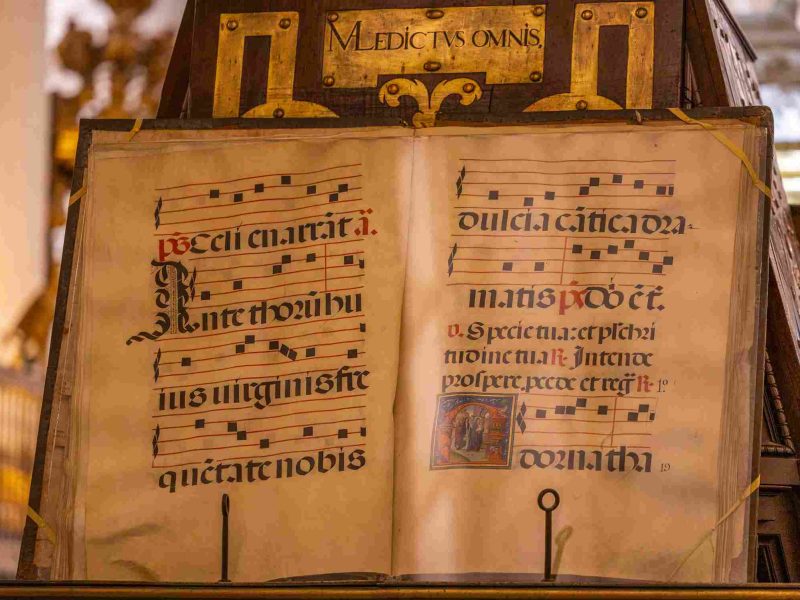 MLEDICTVS OMNIS,
ps Celi enarrāt ā.
Ante thorū hu
ius uirginis fre
quētate nobis
dulcia cātica dra-
matis ps Dō ē t̄.
v. Specie tua: et pulchri
tudine tua R. Intende
prospere, procede et reg R. 1º
dorna tha 19